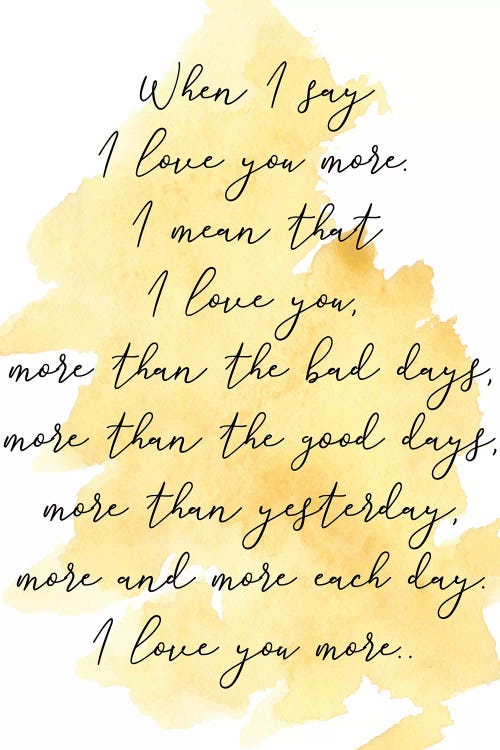 When I say
I love you more.
I mean that
I love you,
more than the bad days,
more than the good days,
more than yesterday,
more and more each day.
I love you more..